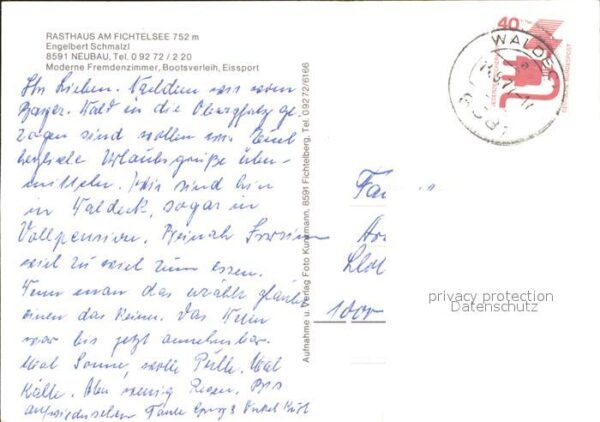 RASTHAUS AM FICHTELSEE 752 m
Engelbert Schmalzl
8591 NEUBAU, Tel. 0 92 72 / 2 20
Moderne Fremdenzimmer, Bootsverleih, Eissport
Ihr Lieben. Nachdem wir vom
Bayer. Wald in die Oberpfalz ge-
zogen sind wollen wir Euch
herzliche Urlaubsgrüße über-
mitteln. Wir sind hier
in Waldeck, sogar in
Vollpension. Beinah
viel zu viel zum essen.
Wenn man das erzählt glaubt
einen das keiner. Das Wetter
war bis jetzt annehmbar.
Mal Sonne, mal
Kälte. Aber wenig Regen. Bis
auf Wiedersehen Tante Onkel
Aufnahme u. Verlag Foto Kunzmann, 8591 Fichtelberg, Tel. 09272/6166
40
DEUTSCHE BUNDESPOST
WALDECK
8581
Fa
1000
privacy protection
Datenschutz